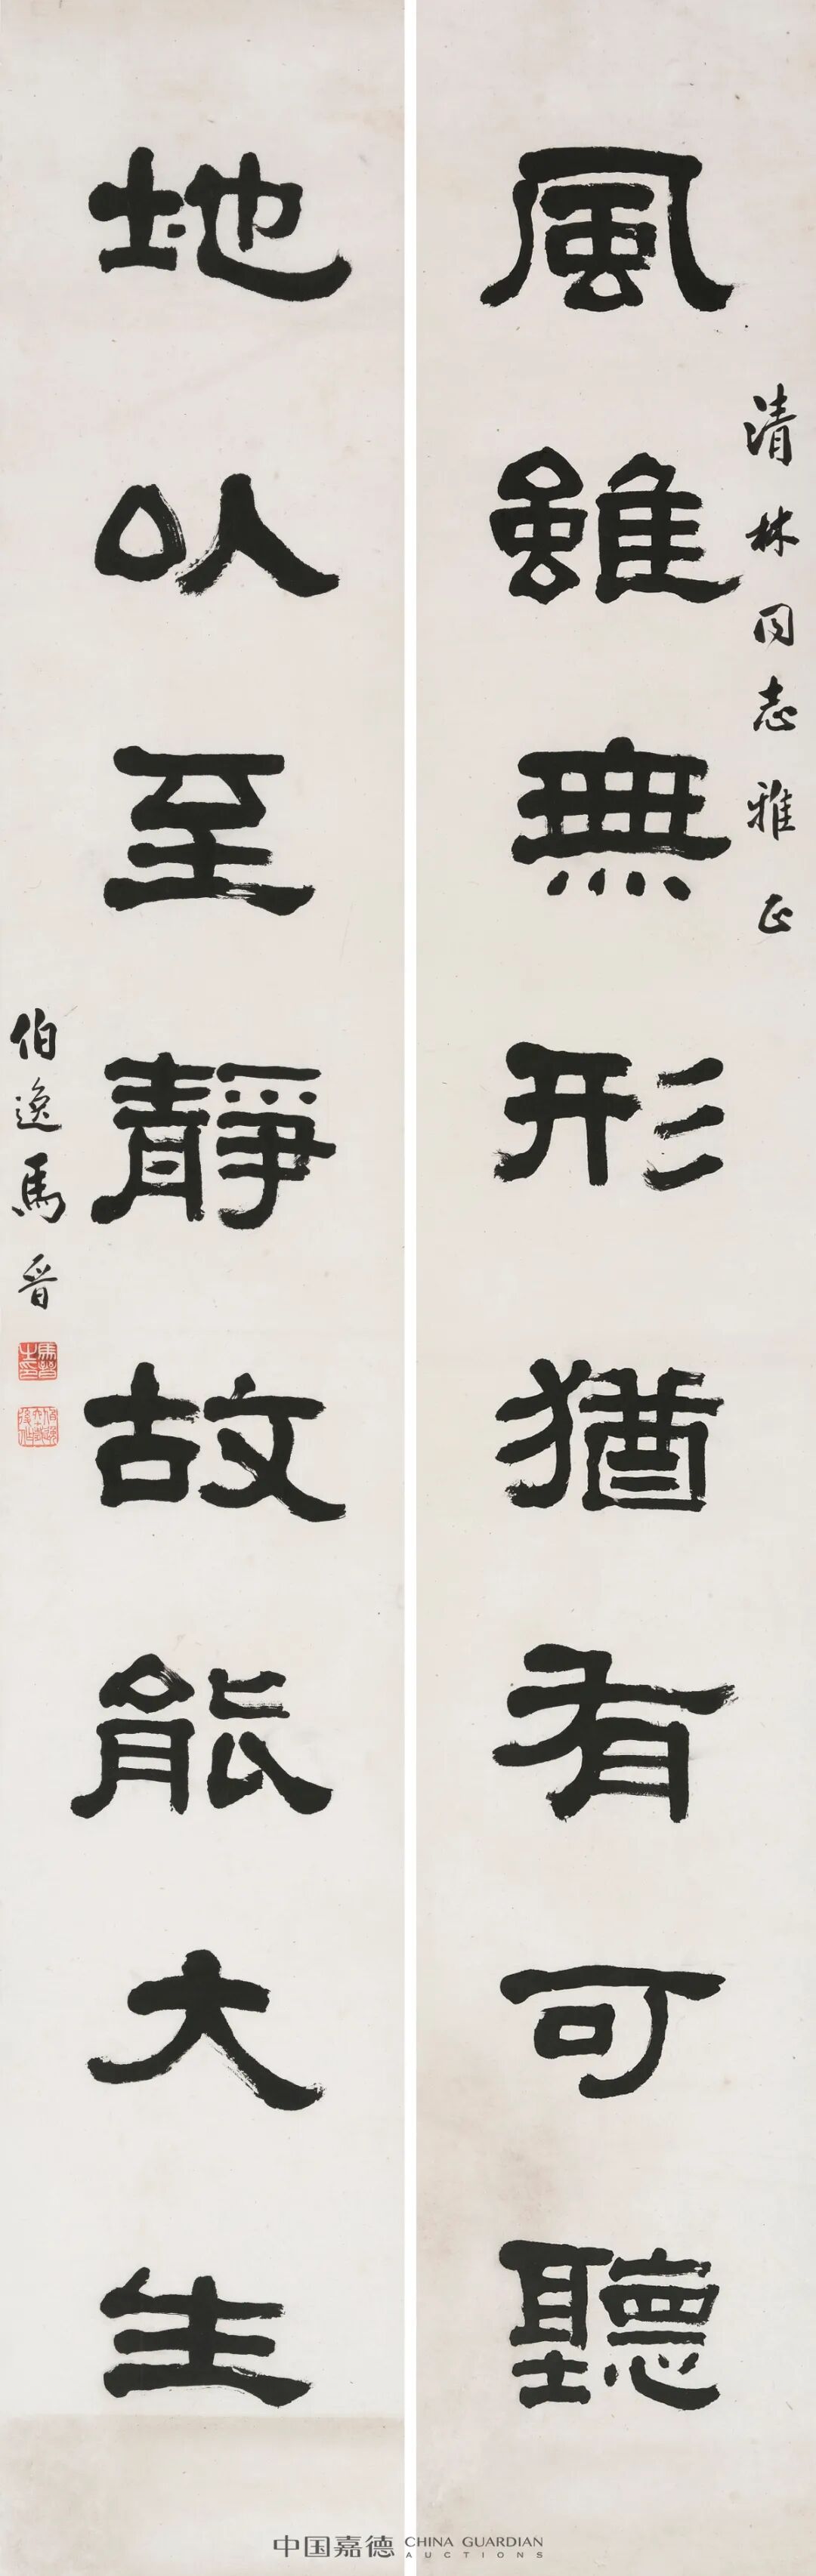 風雖無形猶有可聽
清林同志雅正
地以至靜故能大生
伯逸馬晉
中国嘉德 CHINA GUARDIAN
AUCTIONS